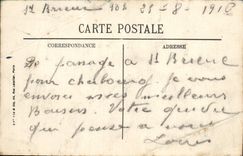 St Brieuc 25-8-191
CARTE POSTALE
CORRESPONDANCE
ADRESSE
De passage a St Brieuc
pour je vous
envois mes meilleurs
Baisers. Votre
qui pense a vous
Louis